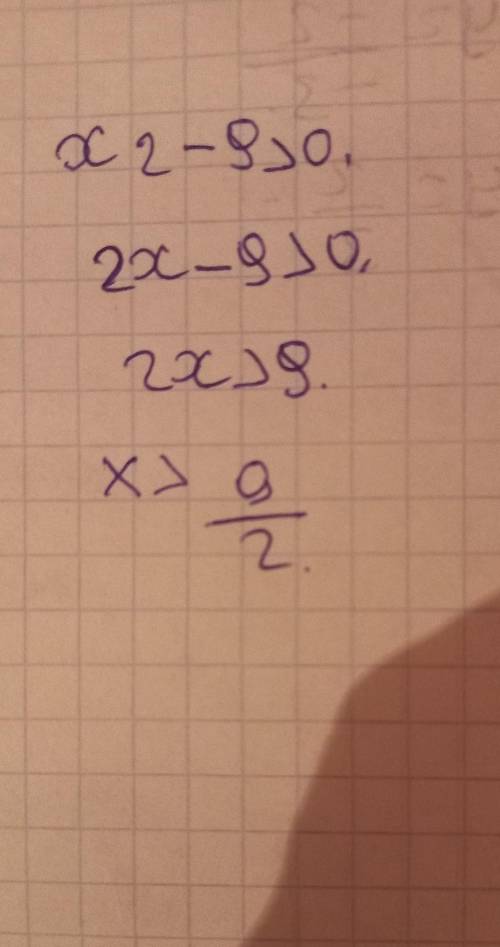 x 2 - 9 > 0.
2x - 9 > 0.
2x > 9.
x > 9/2.